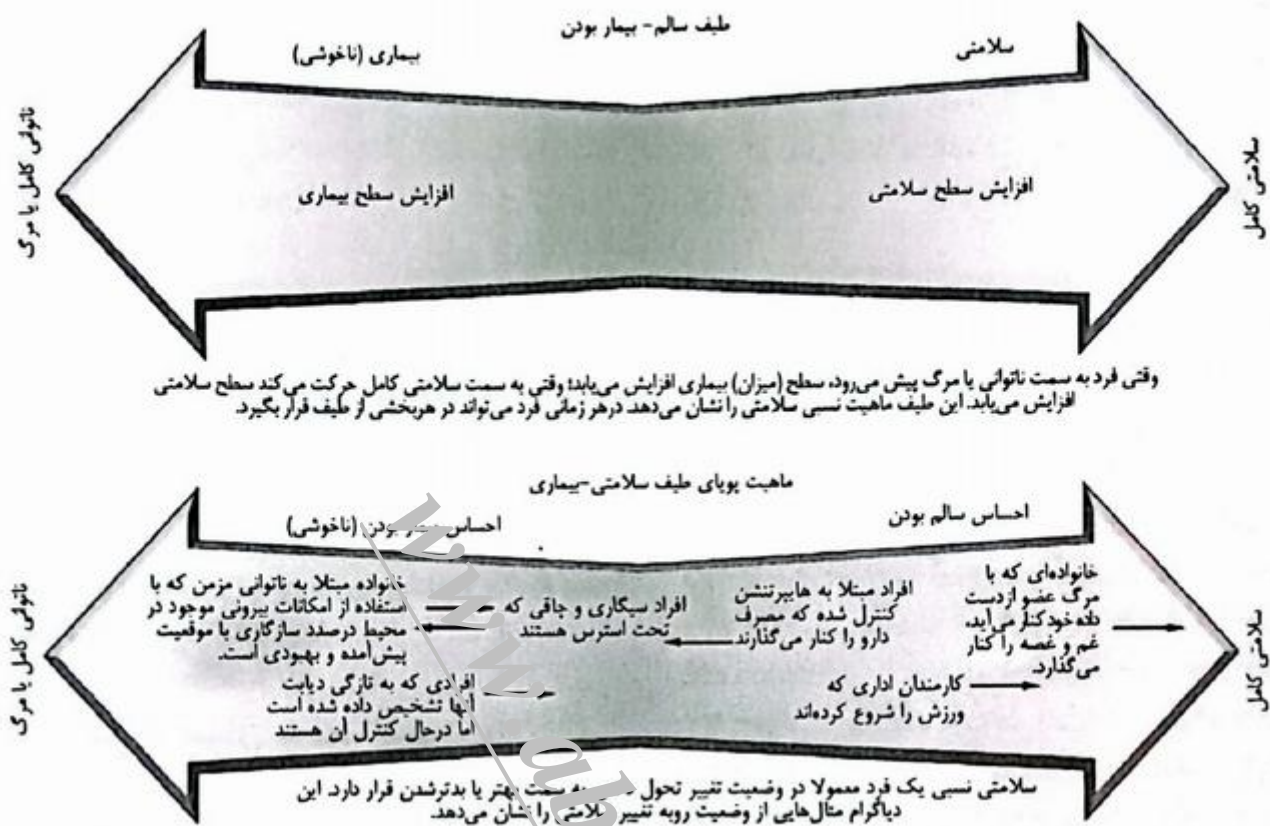 طیف سالم- بیمار بودن
سلامتی
بیماری (ناخوشی)
سلامتی کامل
افزایش سطح سلامتی
افزایش سطح بیماری
ناتوانی کامل یا مرگ
وقتی فرد به سمت ناتوانی یا مرگ پیش می‌رود، سطح (میزان) بیماری افزایش می‌یابد؛ وقتی به سمت سلامتی کامل حرکت می‌کند سطح سلامتی
افزایش می‌یابد. این طیف ماهیت نسبی سلامتی را نشان می‌دهد. درهر زمانی فرد می‌تواند در هربخشی از طیف قرار بگیرد.
ماهیت پویای طیف سلامتی-بیماری
احساس سالم بودن
احساس بیمار بودن (ناخوشی)
سلامتی کامل
خانواده‌ای که با
مرگ عضو ازدست
داده خود کنار می‌آید،
غم و غصه را کنار
می‌گذارد.
افراد مبتلا به هایپرتنشن
کنترل شده که مصرف
دارو را کنار می‌گذارند
کارمندان اداری که
ورزش را شروع کرده‌اند
افراد سیگاری و چاقی که
تحت استرس هستند
خانواده مبتلا به ناتوانی مزمن که با
استفاده از امکانات بیرونی موجود در
محیط درصدد سازگاری با موقعیت
پیش‌آمده و بهبودی است.
افرادی که به تازگی دیابت
آنها تشخیص داده شده است
اما درحال کنترل آن هستند
ناتوانی کامل یا مرگ
سلامتی نسبی یک فرد معمولا در وضعیت تغییر تحول به سمت بهتر یا بدترشدن قرار دارد. این
دیاگرام مثال‌هایی از وضعیت روبه تغییر سلامتی را نشان می‌دهد.